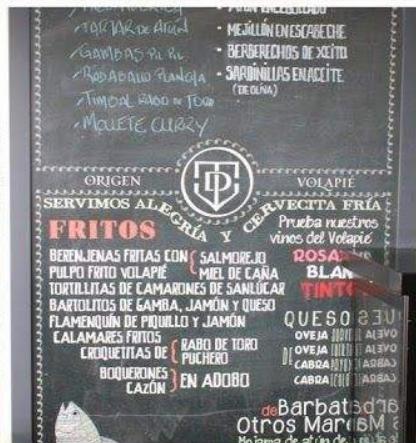 -TARTAR DE ATÚN
-GAMBAS PIL PIL
-RODABALLO PLANCHA
-TIMBAL RABO DE TORO
-MOLLETE CURRY
• MEJILLÓN EN ESCABECHE
• BERBERECHOS DE XEITO
• SARDINILLAS EN ACEITE
(DE OLIVA)
ORIGEN
VOLAPIÉ
SERVIMOS ALEGRÍA Y CERVECITA FRÍA
FRITOS
BERENJENAS FRITAS CON { SALMOREJO
PULPO FRITO VOLAPIÉ { MIEL DE CAÑA
TORTILLITAS DE CAMARONES DE SANLÚCAR
BARTOLITOS DE GAMBA, JAMÓN Y QUESO
FLAMENQUÍN DE PIQUILLO Y JAMÓN
CALAMARES FRITOS
CROQUETITAS DE { RABO DE TORO
PUCHERO
BOQUERONES
CAZÓN } EN ADOBO
Prueba nuestros
vinos del Volapié
TINTO
QUESOS
OVEJA
OVEJA
DE CABRA
CABRA
de Barbate
Otros Mar
Mojama de atún de